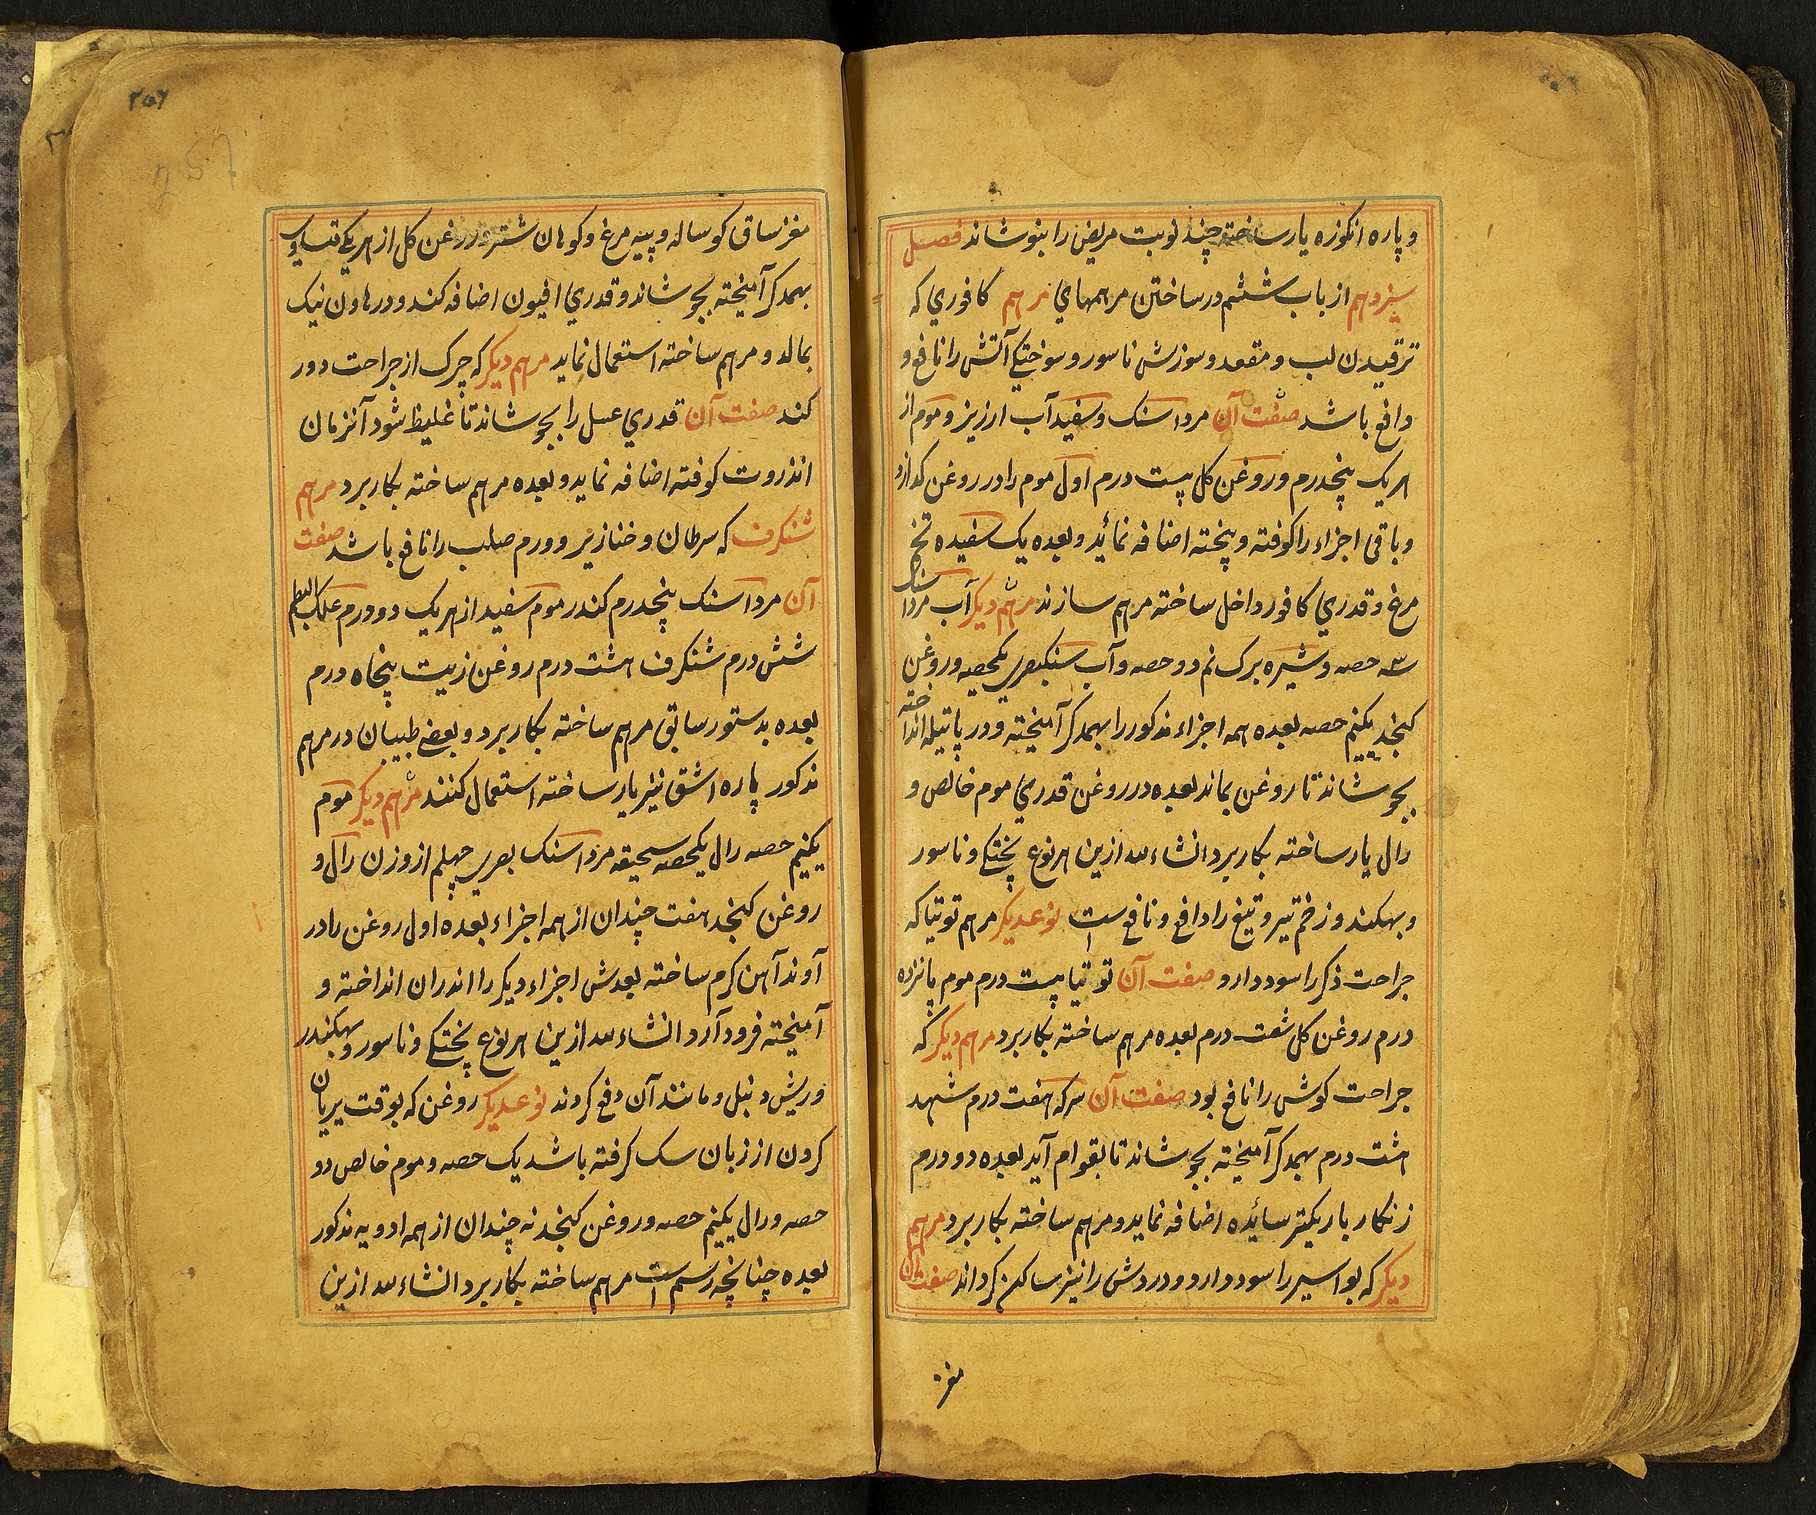 و پاره انکوزه یار ساخته چند نوبت مریض را بنوشاند فصل
سیزدهم از باب ششم در ساختن مرهمهای مرهم کافوری که
ترقیدن لب و مقعد و سوزش ناسور و سوختکی آتش را نافع و
دافع باشد صفت آن مرداسنک و سفیدآب ارزیز و موم از
هریک پنجدرم و روغن کل بیست درم اول موم را در روغن کدازد
و باقی اجزاء را کوفته و بیخته اضافه نمائید و بعده یک سفیده تخم
مرغ و قدری کافور داخل ساخته مرهم سازند مرهم دیکر آب مرداسنک
سه حصه و شیره برک نم دو حصه و آب سنکبصری یکحصه و روغن
کنجد یکنیم حصه بعده همه اجزاء مذکور را بهمدکر آمیخته و در پاتیله انداخته
بجوشاند تا روغن بماند بعده در روغن قدری موم خالص و
رال یار ساخته بکار برد انشاء لله ازین هر نوع پختکی و ناسور
و بهکندر و زخم تیر و تیغ را دافع و نافع است نوعدیکر مرهم توتیا که
جراحت ذکر را سود دارد صفت آن توتیا بیست درم موم پانزده
درم روغن کل شصت درم بعده مرهم ساخته بکار برد مرهم دیکر که
جراحت کوش را نافع بود صفت آن سرکه هفت درم شهد
هشت درم بهمدکر آمیخته بجوشاند تا بقوام آید بعده دو درم
زنکار باریکتر سائیده اضافه نماید و مرهم ساخته بکار برد مرهم
دیکر که بواسیر را سود دارد و دردش را نیز ساکن کرداند صفت آن
مغز
۲۵۶
257
مغز ساق کوساله و پیه مرغ و کوهان شتر و روغن کل از هریکی
بهمدکر آمیخته بجوشاند و قدری افیون اضافه کند و در هاون نیک
بمالد و مرهم ساخته استعمال نماید مرهم دیکر که چرک از جراحت دور
کند صفت آن قدری عسل را بجوشاند تا غلیظ شود آنزمان
انذروت کوفته اضافه نماید و بعده مرهم ساخته بکار برد مرهم
شنکرف که سرطان و خنازیر و ورم صلب را نافع باشد صفت
آن مرداسنک پنجدرم کندر موم سفید از هریک دو درم علک البطم
شش درم شنکرف هشت درم روغن زیت پنجاه درم
بعده بدستور سابق مرهم ساخته بکار برد و بعضی طبیبان در مرهم
مذکور پاره اشق نیز یار ساخته استعمال کنند مرهم دیکر موم
یکنیم حصه رال یکحصه سحیقه مرداسنک بصری چهلم از وزن رال و
روغن کنجد هفت چندان از همه اجزاء بعده اول روغن را در
آوند آهن کرم ساخته بعدش اجزاء دیکر را اندران انداخته و
آمیخته فرود آرد انشاء لله ازین هر نوع پختکی و ناسور و بهکندر
و ریش دنبل و مانند آن دفع کردند نوعدیکر روغن که بوقت بریان
کردن از زبان سک کرفته باشد یک حصه و موم خالص دو
حصه و رال یکنیم حصه و روغن کنجد نه چندان از همه ادویه مذکور
بعده چنانچه رسم است مرهم ساخته بکار برد انشاء لله ازین